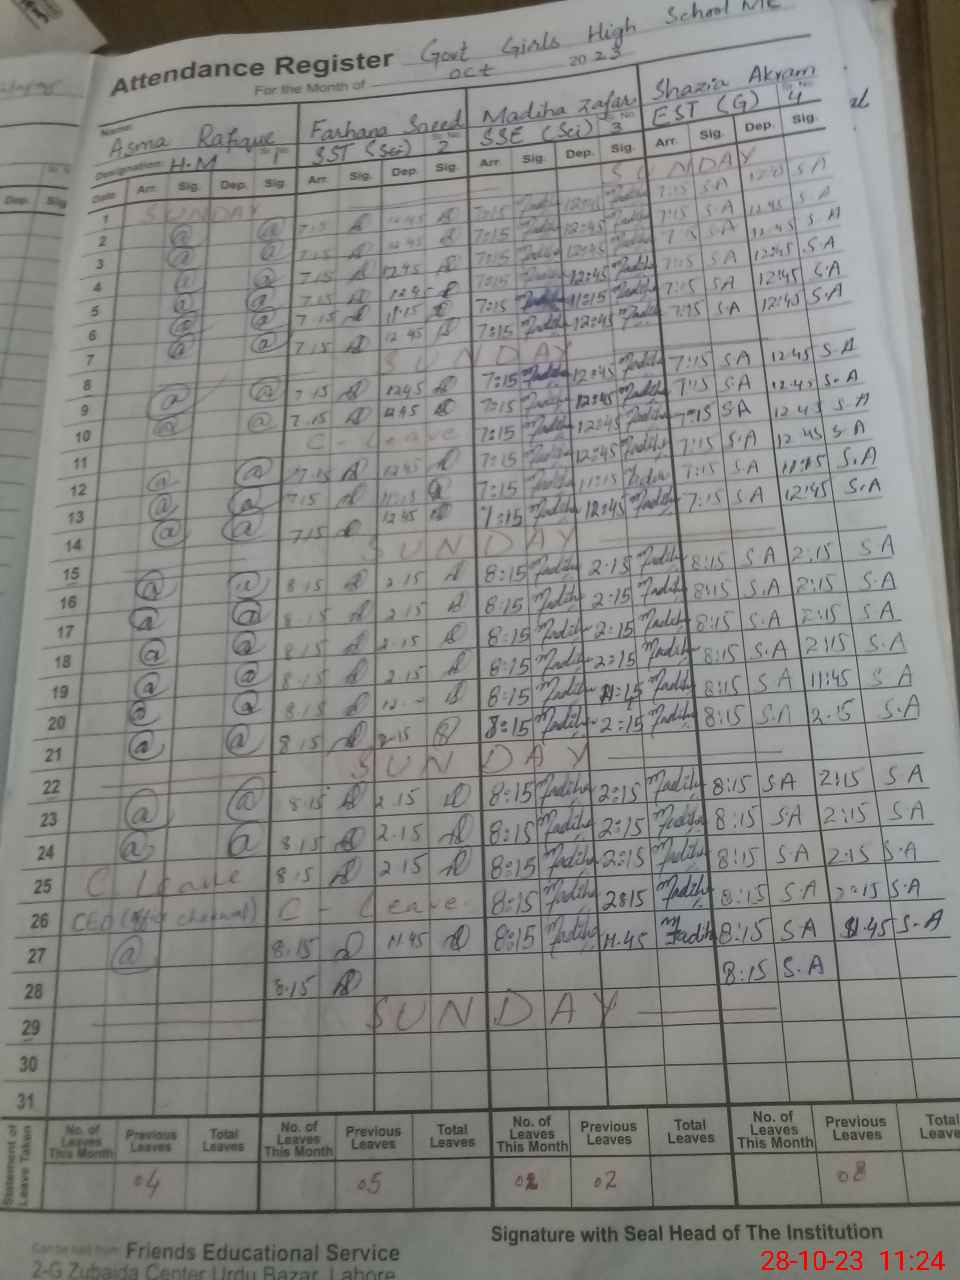 Attendance Register Govt Girls High School
For the Month of Oct 2023
Name: Asma Rafique Farhana Saeed Madiha Zafar Shazia Akram
Designation: H.M 1 SST (Sci) 2 SSE (Sci) 3 EST (G) 4
Date Arr. Sig. Dep. Sig. Arr. Sig. Dep. Sig. Arr. Sig. Dep. Sig. Arr. Sig. Dep. Sig.
1 SUNDAY SUNDAY
2 @ @ 7:15 12:45 7:15 Madiha 12:45 Madiha 7:15 S.A 12:45 S.A
3 @ 7:15 12:45 7:15 Madiha 12:45 Madiha 7:15 S.A 12:45 S.A
4 @ @ 7:15 12:45 7:15 Madiha 12:45 Madiha 7:15 S.A 12:45 S.A
5 @ @ 7:15 12:45 7:15 Madiha 12:45 Madiha 7:15 S.A 12:45 S.A
6 @ @ 7:15 11:15 7:15 Madiha 11:15 Madiha 7:15 S.A
7 @ @ 7:15 12:45 7:15 Madiha 12:45 Madiha 7:15 S.A 12:45 S.A
8 SUNDAY
9 @ @ 7:15 12:45 7:15 Madiha 12:45 Madiha 7:15 S.A 12:45 S.A
10 @ @ 7:15 12:45 7:15 Madiha 12:45 Madiha 7:15 S.A 12:45 S.A
11 C-Leave 7:15 Madiha 12:45 Madiha 7:15 S.A 12:45 S.A
12 @ @ 7:15 12:45 7:15 Madiha 12:45 Madiha 7:15 S.A 12:45 S.A
13 @ @ 7:15 11:15 7:15 Madiha 11:15 7:15 S.A 11:15 S.A
14 @ @ 7:15 12:45 7:15 Madiha 12:45 Madiha 7:15 S.A 12:45 S.A
15 SUNDAY
16 @ @ 8:15 2:15 8:15 Madiha 2:15 Madiha 8:15 S.A 2:15 S.A
17 @ @ 8:15 2:15 8:15 Madiha 2:15 Madiha 8:15 S.A 2:15 S.A
18 @ @ 8:15 2:15 8:15 Madiha 2:15 Madiha 8:15 S.A 2:15 S.A
19 @ @ 8:15 2:15 8:15 Madiha 2:15 Madiha 8:15 S.A 2:15 S.A
20 @ @ 8:15 8:15 Madiha Madiha 8:15 S.A 11:45 S.A
21 @ @ 8:15 2:15 8:15 Madiha 2:15 Madiha 8:15 S.A 2:15 S.A
22 SUNDAY
23 @ @ 8:15 2:15 8:15 Madiha 2:15 Madiha 8:15 S.A 2:15 S.A
24 @ @ 8:15 2:15 8:15 Madiha 2:15 Madiha 8:15 S.A 2:15 S.A
25 C Leave 8:15 2:15 8:15 Madiha 2:15 Madiha 8:15 S.A 2:15 S.A
26 CEO (Office C-Leave 8:15 Madiha 2:15 Madiha 8:15 S.A 2:15 S.A
27 @ 8:15 11.45 8:15 Madiha 11.45 Madiha 8:15 S.A 11.45 S.A
28 8.15 8:15 S.A
29 SUNDAY
30
31
Statement of Leave Taken No. of Leaves This Month Previous Leaves Total Leaves No. of Leaves This Month Previous Leaves Total Leaves No. of Leaves This Month Previous Leaves Total Leaves No. of Leaves This Month Previous Leaves Total
04 05 02 02 08
Signature with Seal Head of The Institution
Friends Educational Service
2-G Zubaida Center Urdu Bazar, Lahore
28-10-23 11:24